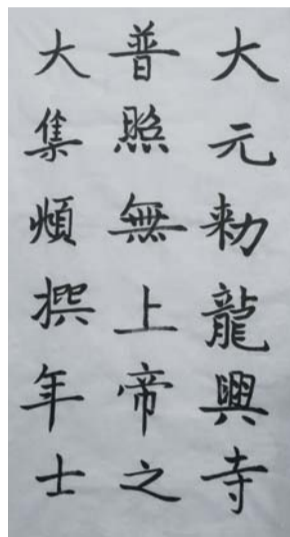 大元勅龍興寺
普照無上帝之
大集頫撰年士